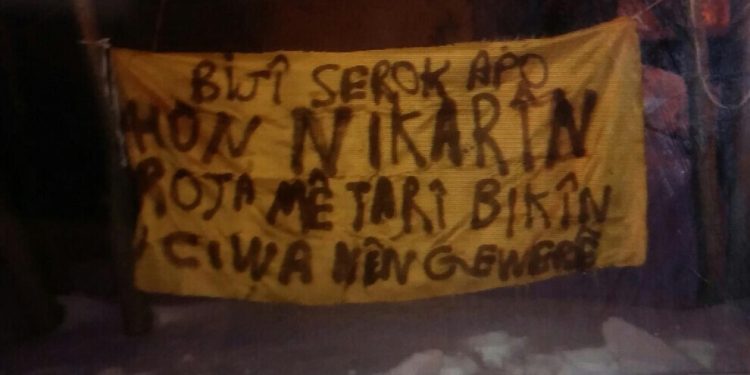 BIJÎ SEROK APO
HÛN NIKARÎN
ROJA MÊ TARÎ BIKÎN
CIWANÊN GEWERÊ